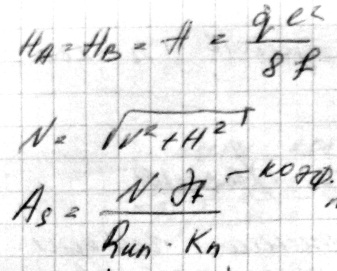 H_A = H_B = H = qℓ² / 8f
N = √(V² + H²)
A_s = N · γ_f / (R_un · K_n) – коэф.